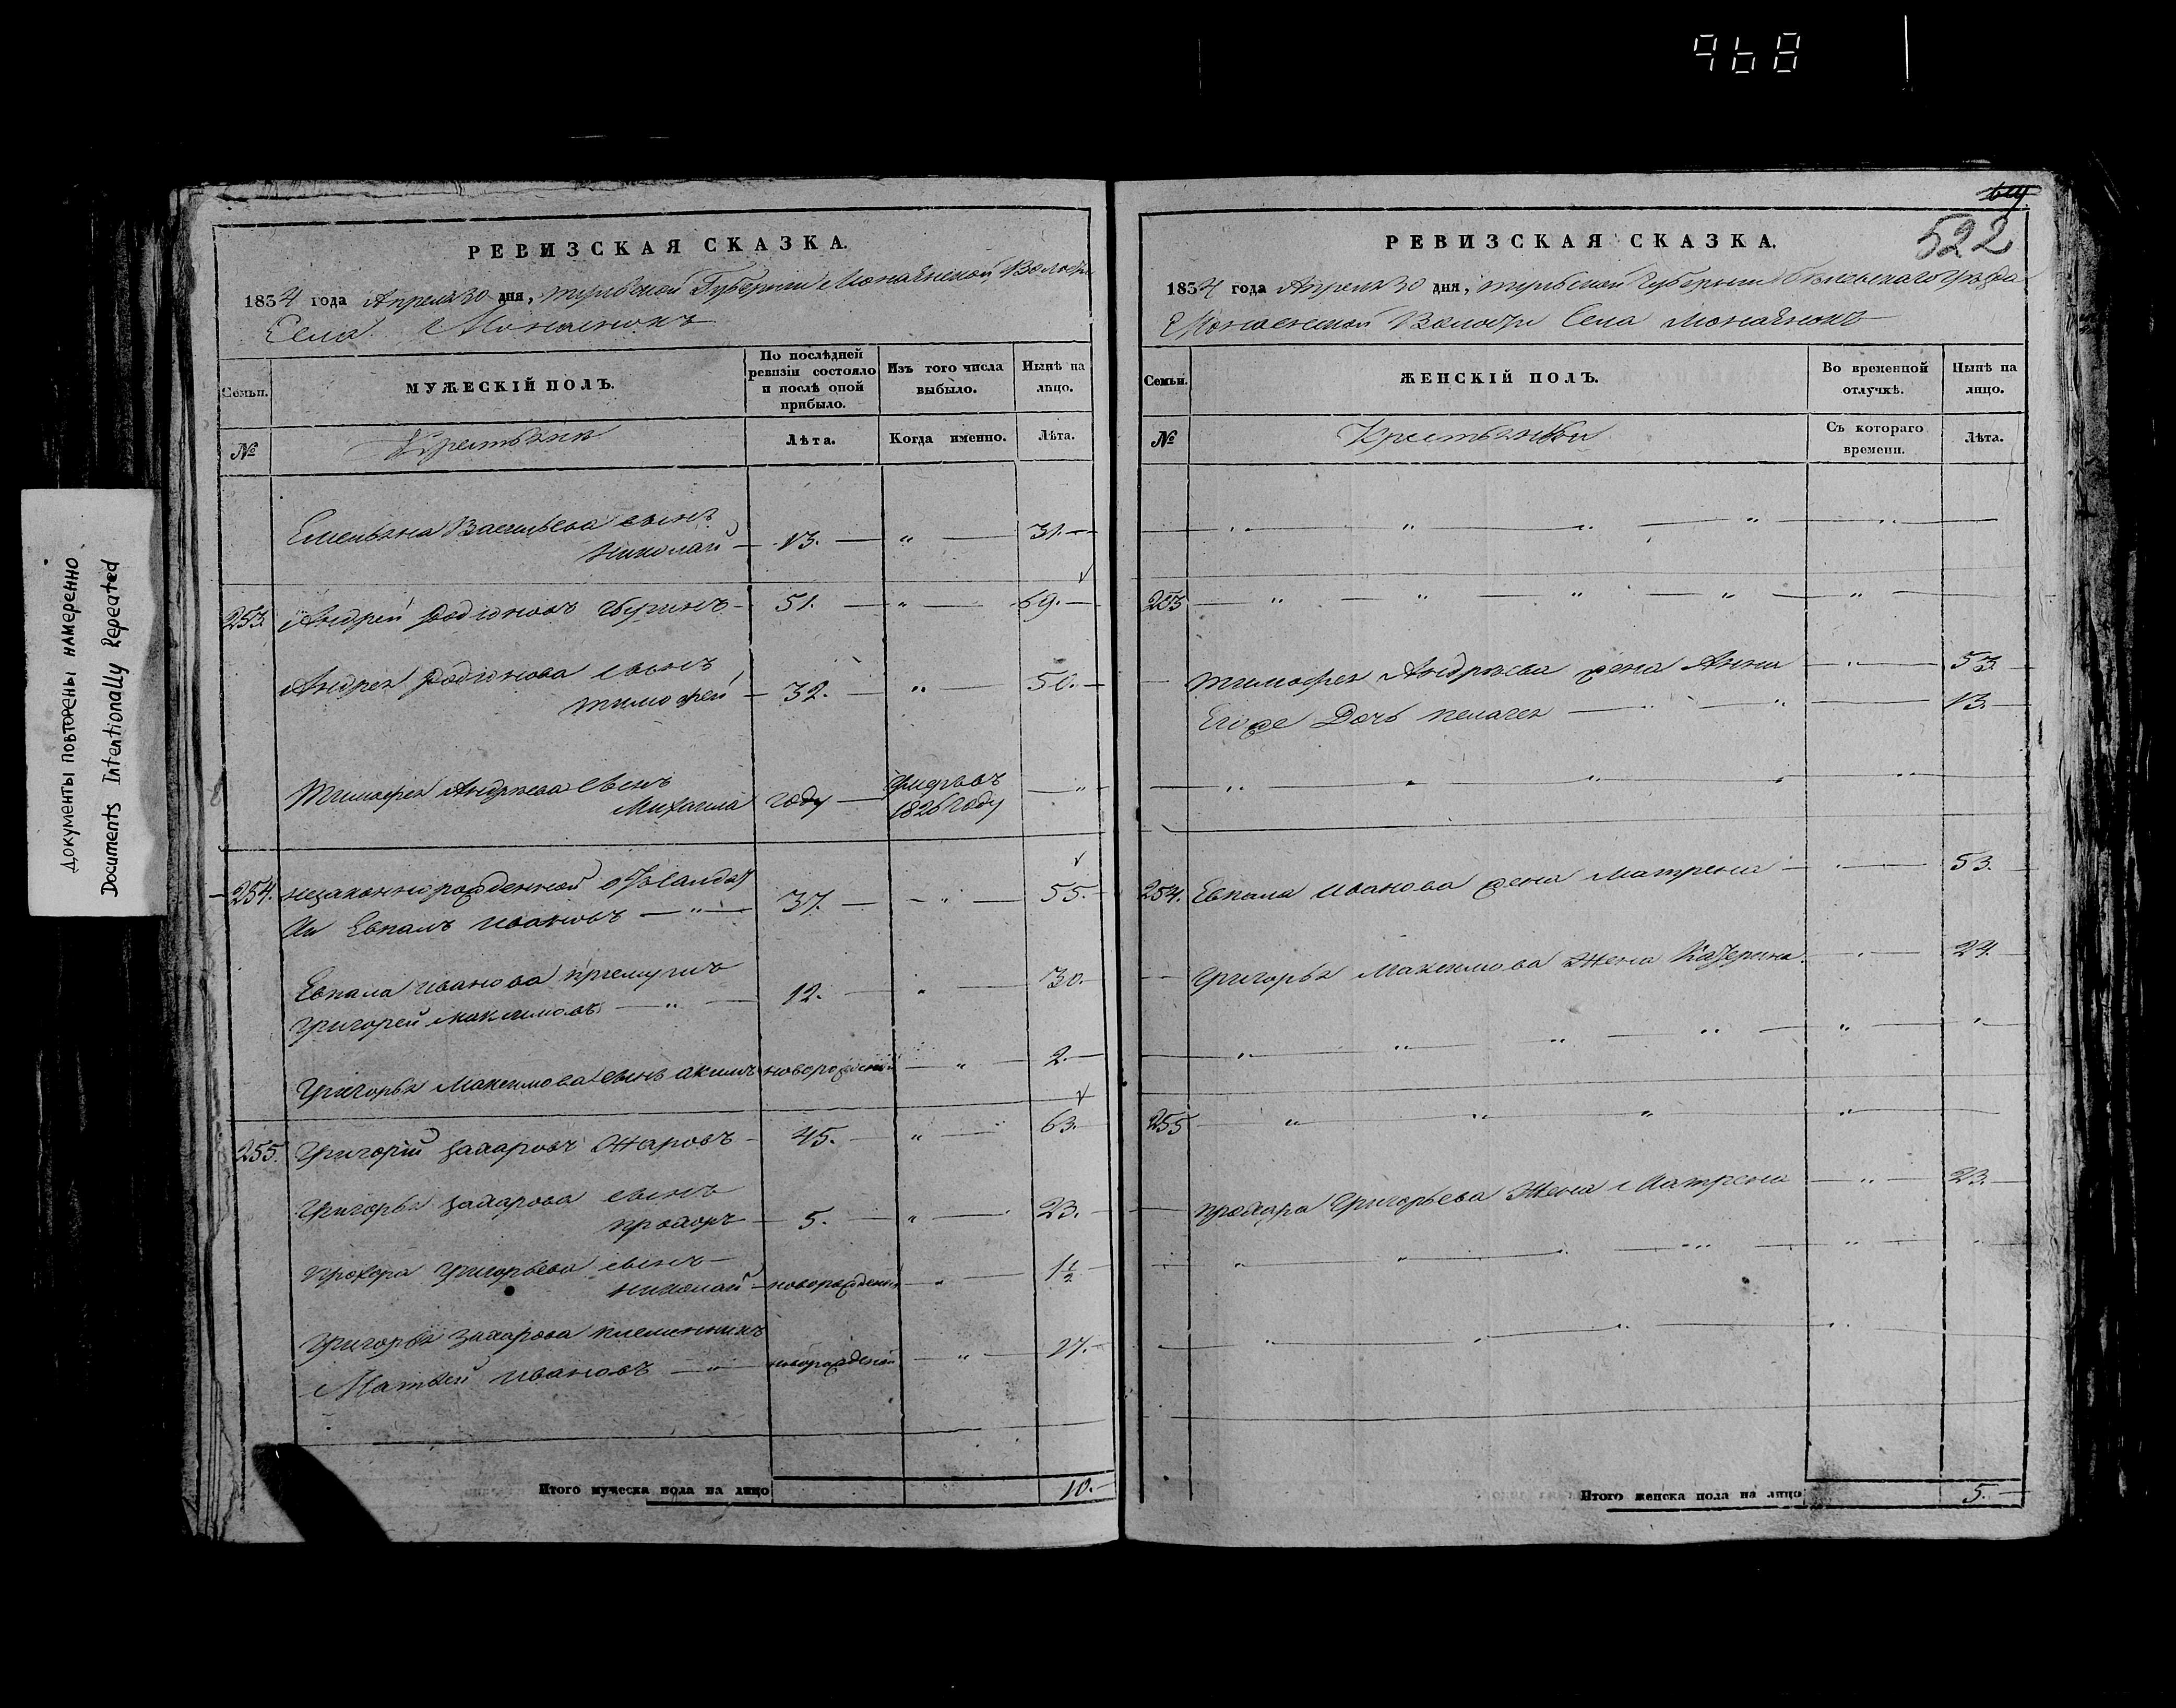 968
Документы повторены намеренно
Documents Intentionally Repeated
РЕВИЗСКАЯ СКАЗКА.
1834 года Апреля 30 дня, Тульской Губернии Монаенской Волости
Села Монаенокъ
Семьи.
МУЖЕСКІЙ ПОЛЪ.
По послѣдней ревизіи состояло и послѣ оной прибыло.
Изъ того числа выбыло.
Нынѣ на лицо.
№
Крестьяне
Лѣта.
Когда именно.
Лѣта.
Емельяна Васильева сынъ
Николай — 13. — " — 31. —
253. Андрей Родіоновъ — 51. — " — 69. —
Андрея Родіонова сынъ
Тимофей — 32. — " — 50. —
Тимофея Андреева сынъ
Михаила году — умре въ 1826 году — " —
254. незаконнорожденной
Евпалъ Ивановъ — " — 37. — " — 55. —
Евпала Иванова приемышъ
Григорей Максимовъ — " — 12. — " — 30. —
Григорья Максимова сынъ Акимъ новорожденный — " — 2. —
255. Григорій Захаровъ Жаровъ — 45. — " — 63. —
Григорья Захарова сынъ
Прохоръ — 5. — " — 23. —
Прохора Григорьева сынъ —
Николай — новорожденный — " — 1 1/2
Григорья Захарова племянникъ
Матвей Ивановъ — " — новорожденный — " — 17. —
Итого мужеска пола на лицо 10. —
522
РЕВИЗСКАЯ СКАЗКА.
1834 года Апреля 30 дня, Тульской Губернии Белевскаго Уезда
Монаенской Волости Села Монаенокъ
Семьи.
ЖЕНСКІЙ ПОЛЪ.
Во временной отлучкѣ.
Нынѣ на лицо.
№
Крестьянки
Съ котораго времени.
Лѣта.
253 — " — " — " — " — " —
Тимофея Андреева жена Анна — " — 53. —
Его же Дочь Пелагея — " — 13. —
254. Евпала Иванова жена Матрена — " — 53. —
Григорья Максимова Жена Катерина — " — 24. —
255 — " — " — " — " —
Прохора Григорьева Жена Матрена — " — 23. —
Итого женска пола на лицо 5. —